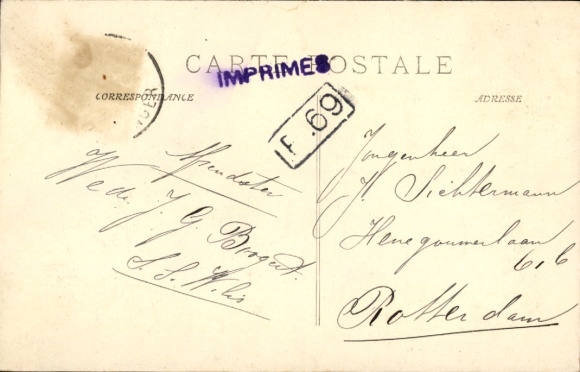 CARTE POSTALE
IMPRIMES
CORRESPONDANCE
ADRESSE
F. 69
Afzendster
Wede. J. G. Bogert.
S. S. Wilis
Jongenheer
J. Sichtermann
Henegouwerlaan
6, 6
Rotterdam